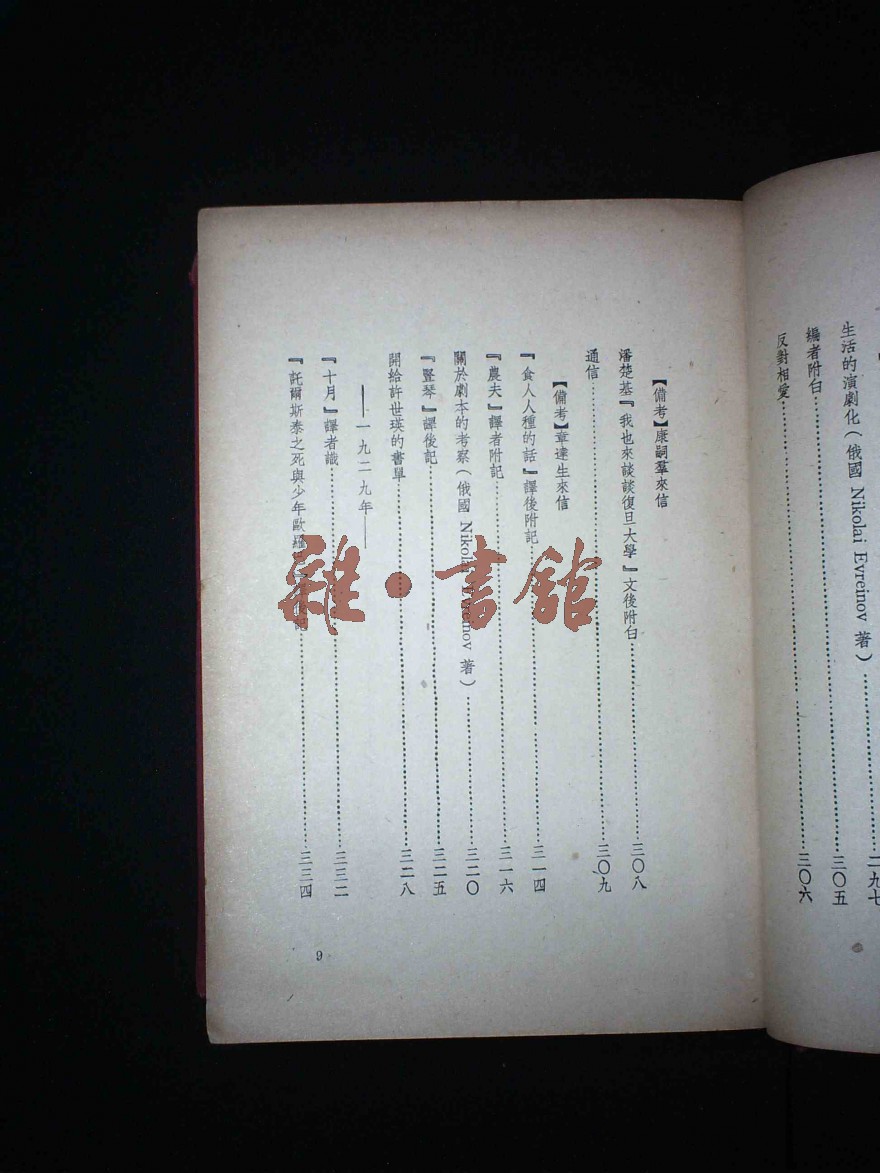 生活的演劇化（俄國 Nikolai Evreinov 著）……二九七
編者附白……三〇五
反對相愛……三〇六
【備考】康嗣羣來信
潘楚基『我也來談談復旦大學』文後附白……三〇八
通信……三〇九
【備考】章達生來信
『食人人種的話』譯後附記……三一四
『農夫』譯者附記……三一六
關於劇本的考察（俄國 Nikolai Evreinov 著）……三二〇
『豎琴』譯後記……三二五
開給許世瑛的書單……三二八
——一九二九年——
『十月』譯者識……三三二
『託爾斯泰之死與少年歐羅……後記……三三四
9
雜·書館